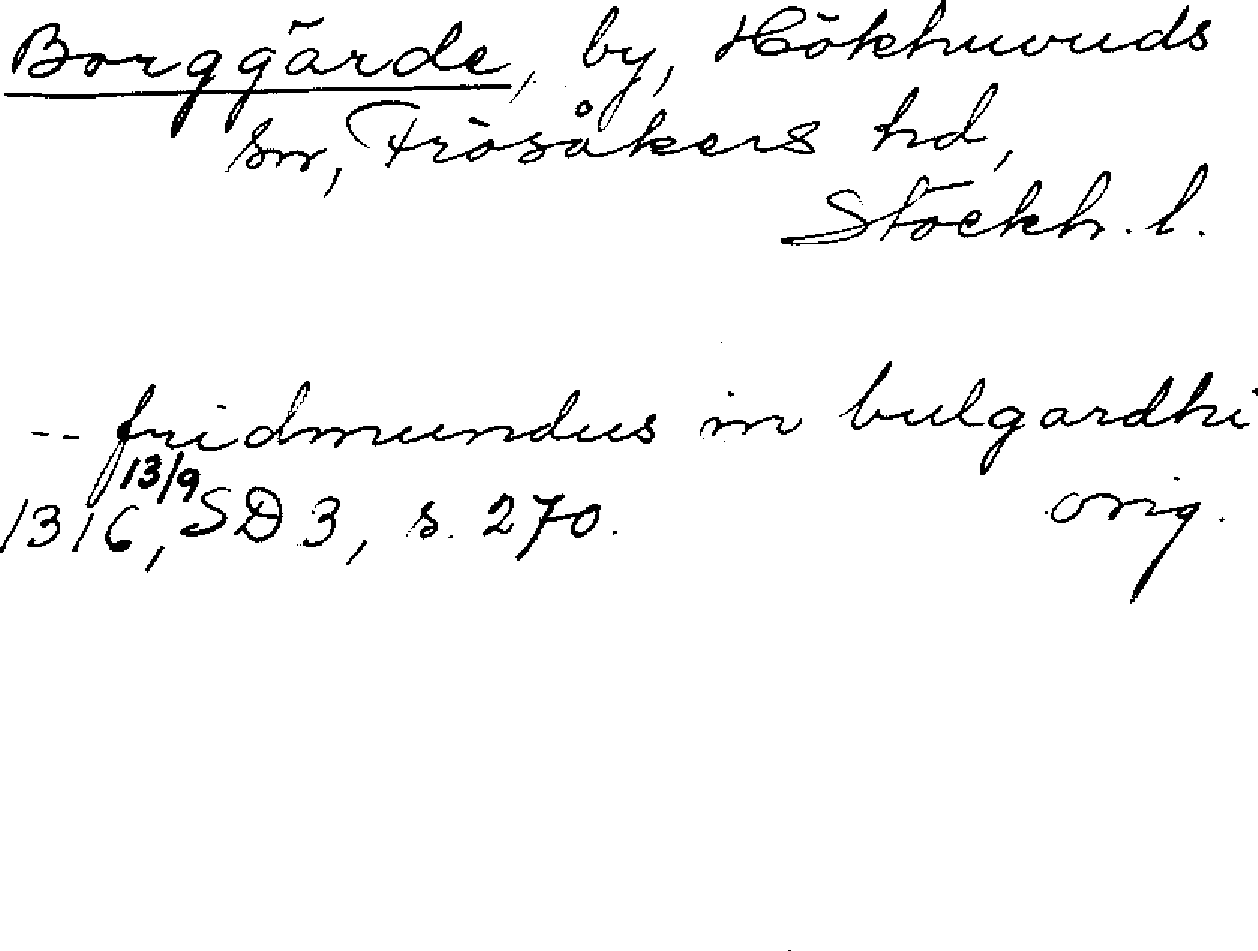 Borggärde, by, Hökhuvuds
sn, Frösåkers hd,
Stockh. l.
-- fridmundus in bulgardhi
13/9
1316, SD 3, s. 270. orig.